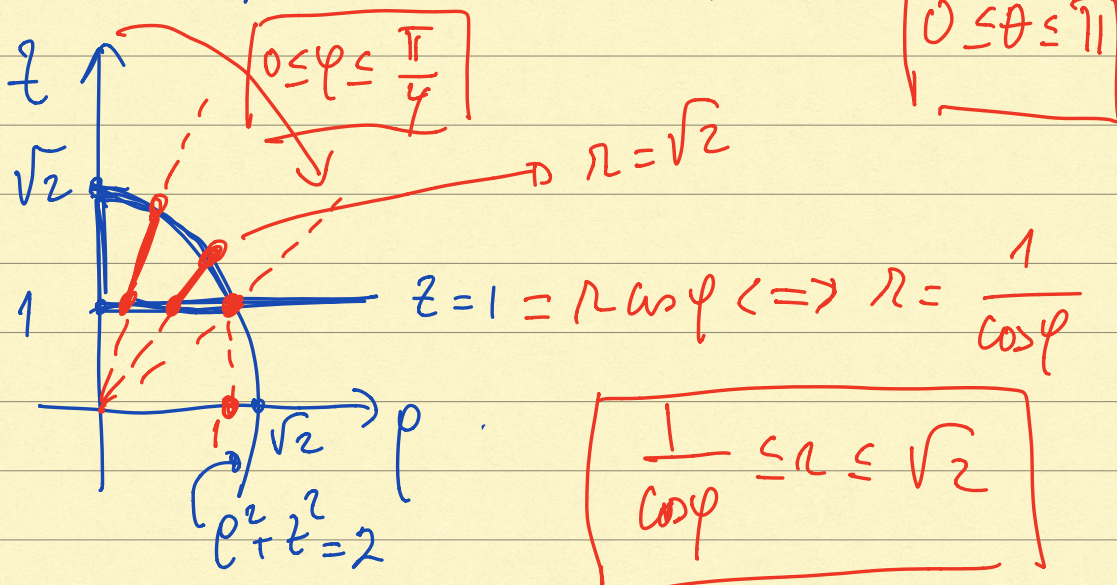 0 ≤ φ ≤ π/4
0 ≤ θ ≤ π
z
√2
r = √2
1
z = 1 = r cos φ <=> r = 1/cos φ
√2
ρ
1/cos φ ≤ r ≤ √2
ρ² + z² = 2